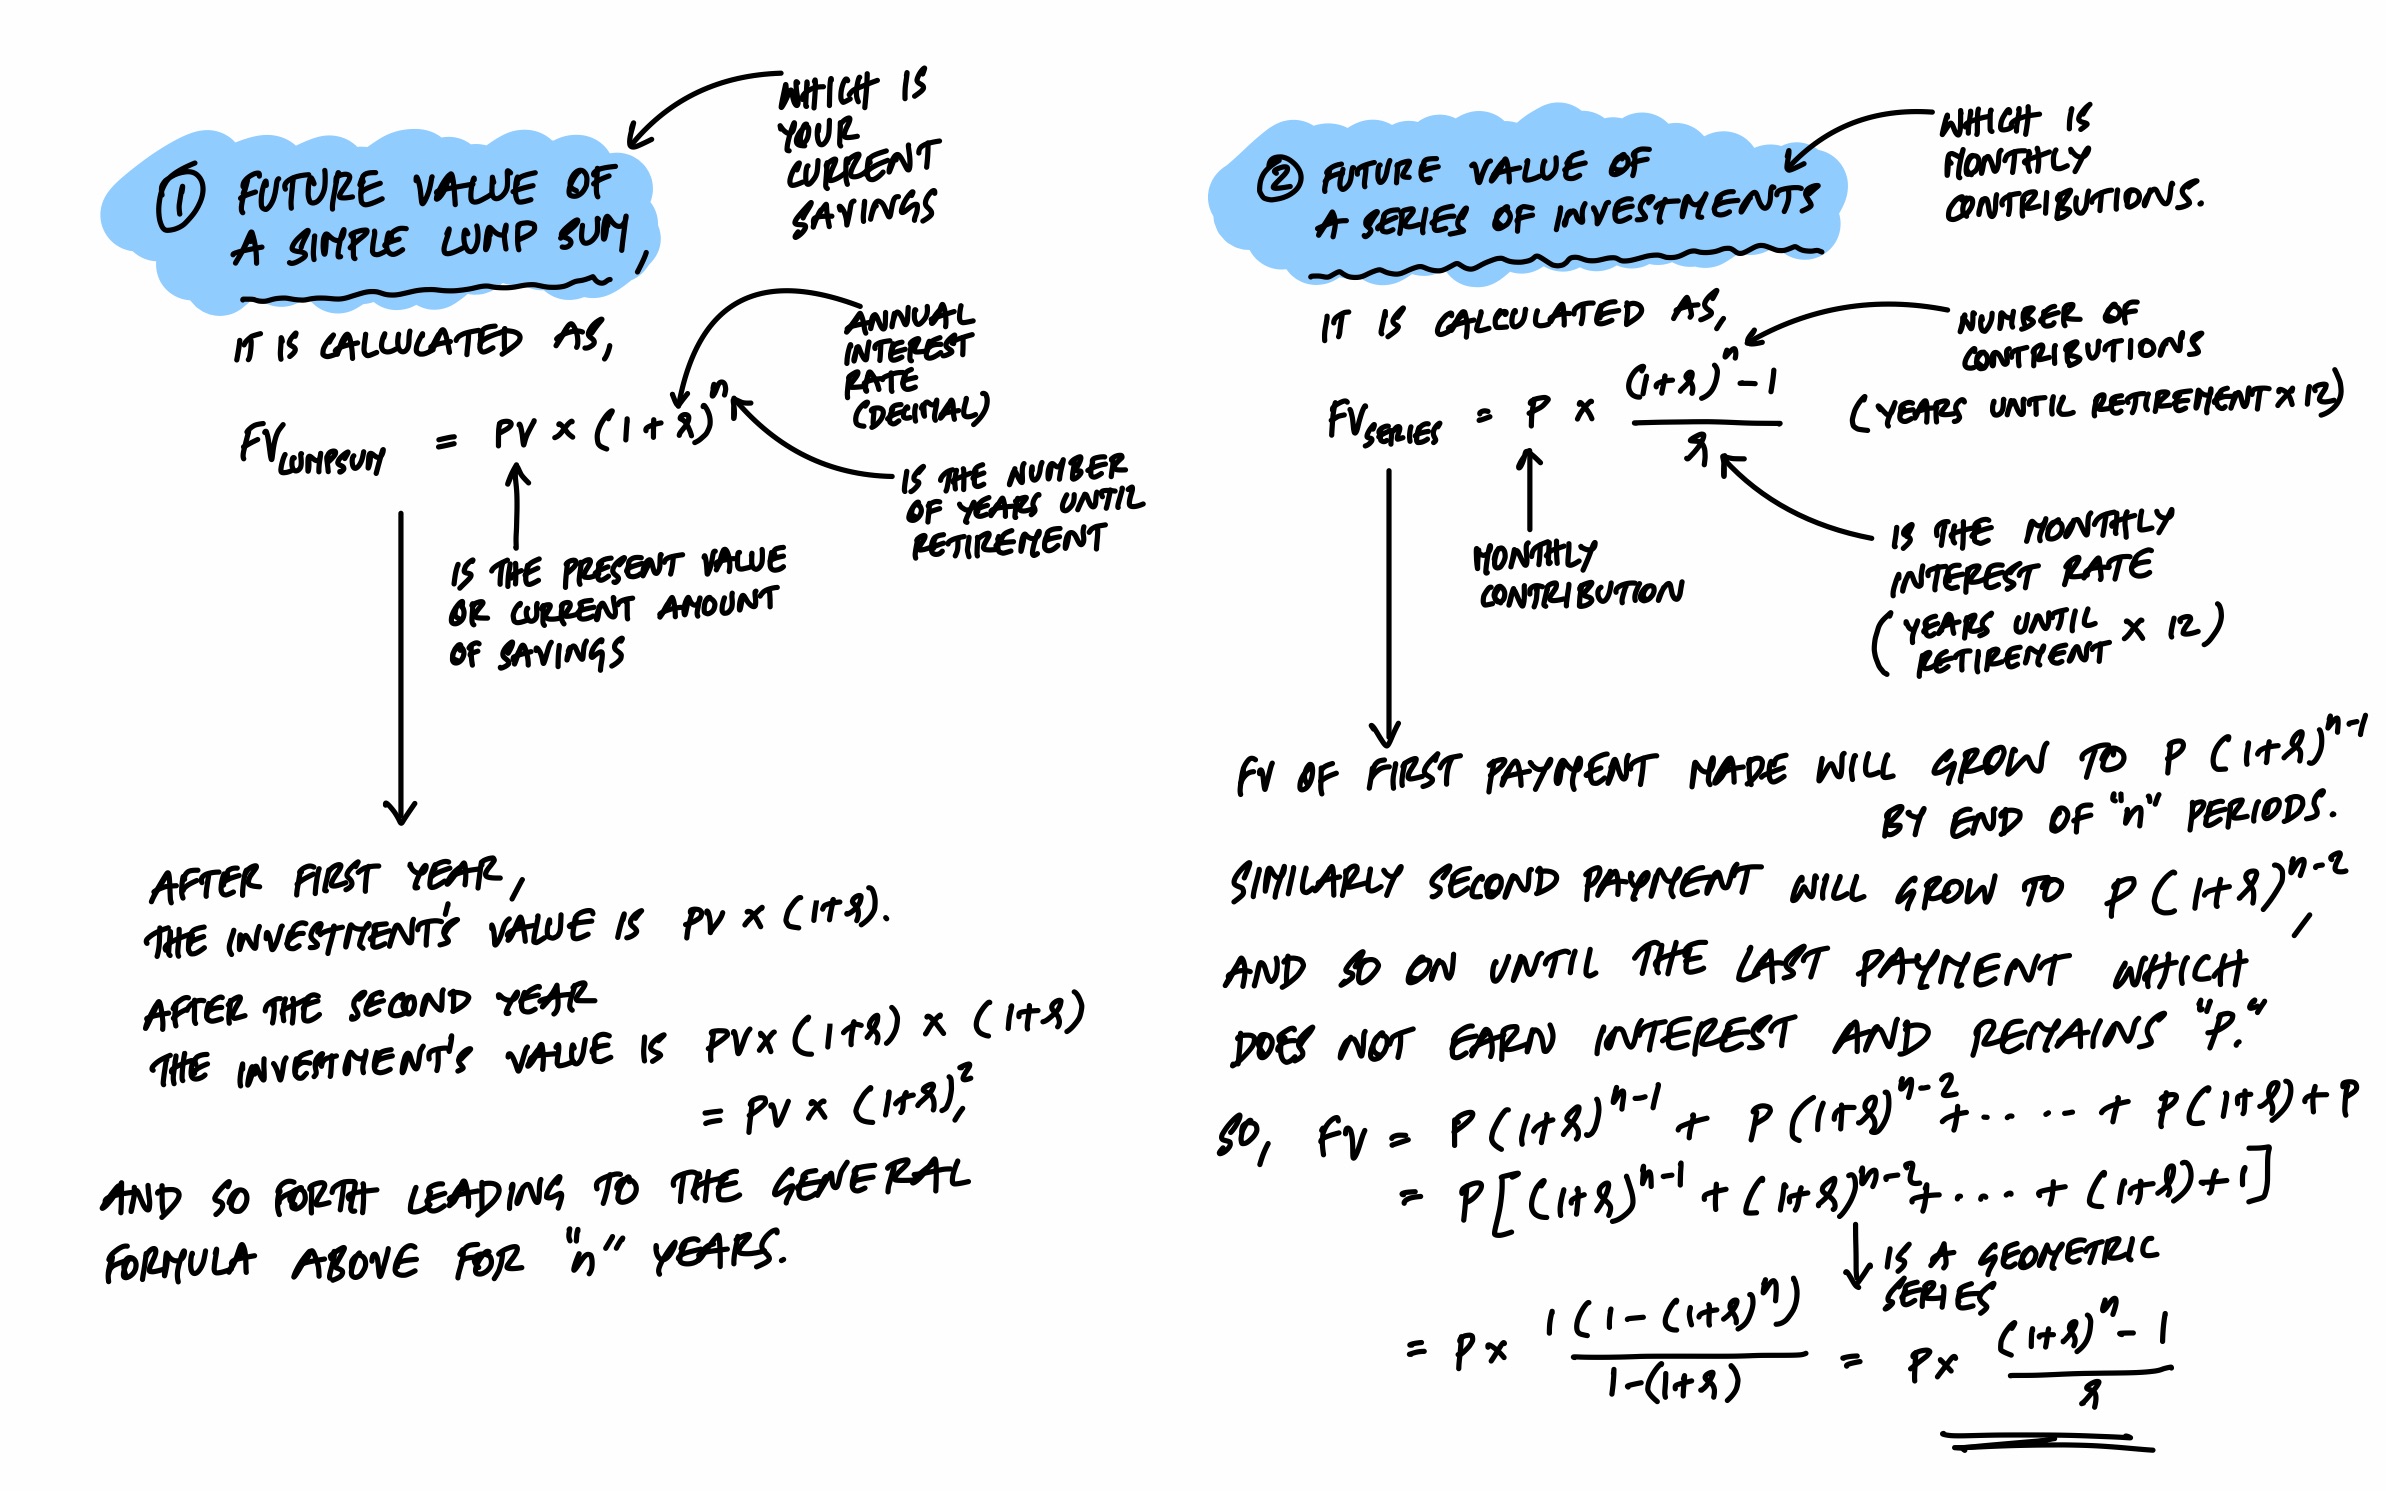 ① FUTURE VALUE OF
A SIMPLE LUMP SUM,
WHICH IS
YOUR
CURRENT
SAVINGS
IT IS CALLUCATED AS,
FV_LUMPSUM = PV × (1+r)^n
ANNUAL
INTEREST
RATE
(DECIMAL)
IS THE NUMBER
OF YEARS UNTIL
RETIREMENT
IS THE PRESENT VALUE
OR CURRENT AMOUNT
OF SAVINGS
AFTER FIRST YEAR,
THE INVESTMENT'S VALUE IS PV × (1+r).
AFTER THE SECOND YEAR
THE INVESTMENT'S VALUE IS PV × (1+r) × (1+r)
= PV × (1+r)^2,
AND SO FORTH LEADING TO THE GENERAL
FORMULA ABOVE FOR "n" YEARS.
② FUTURE VALUE OF
A SERIES OF INVESTMENTS
WHICH IS
MONTHLY
CONTRIBUTIONS.
IT IS CALCULATED AS,
FV_SERIES = P × ((1+r)^n - 1) / r
NUMBER OF
CONTRIBUTIONS
(YEARS UNTIL RETIREMENT × 12)
MONTHLY
CONTRIBUTION
IS THE MONTHLY
INTEREST RATE
(YEARS UNTIL
RETIREMENT × 12)
FV OF FIRST PAYMENT MADE WILL GROW TO P(1+r)^n-1
BY END OF "n" PERIODS.
SIMILARLY SECOND PAYMENT WILL GROW TO P(1+r)^n-2,
AND SO ON UNTIL THE LAST PAYMENT WHICH
DOES NOT EARN INTEREST AND REMAINS "P."
SO, FV = P(1+r)^n-1 + P(1+r)^n-2 + ..... + P(1+r) + P
= P[(1+r)^n-1 + (1+r)^n-2 + ... + (1+r) + 1]
IS A GEOMETRIC
SERIES
= P × 1(1-(1+r)^n) / 1-(1+r) = P × ((1+r)^n - 1) / r